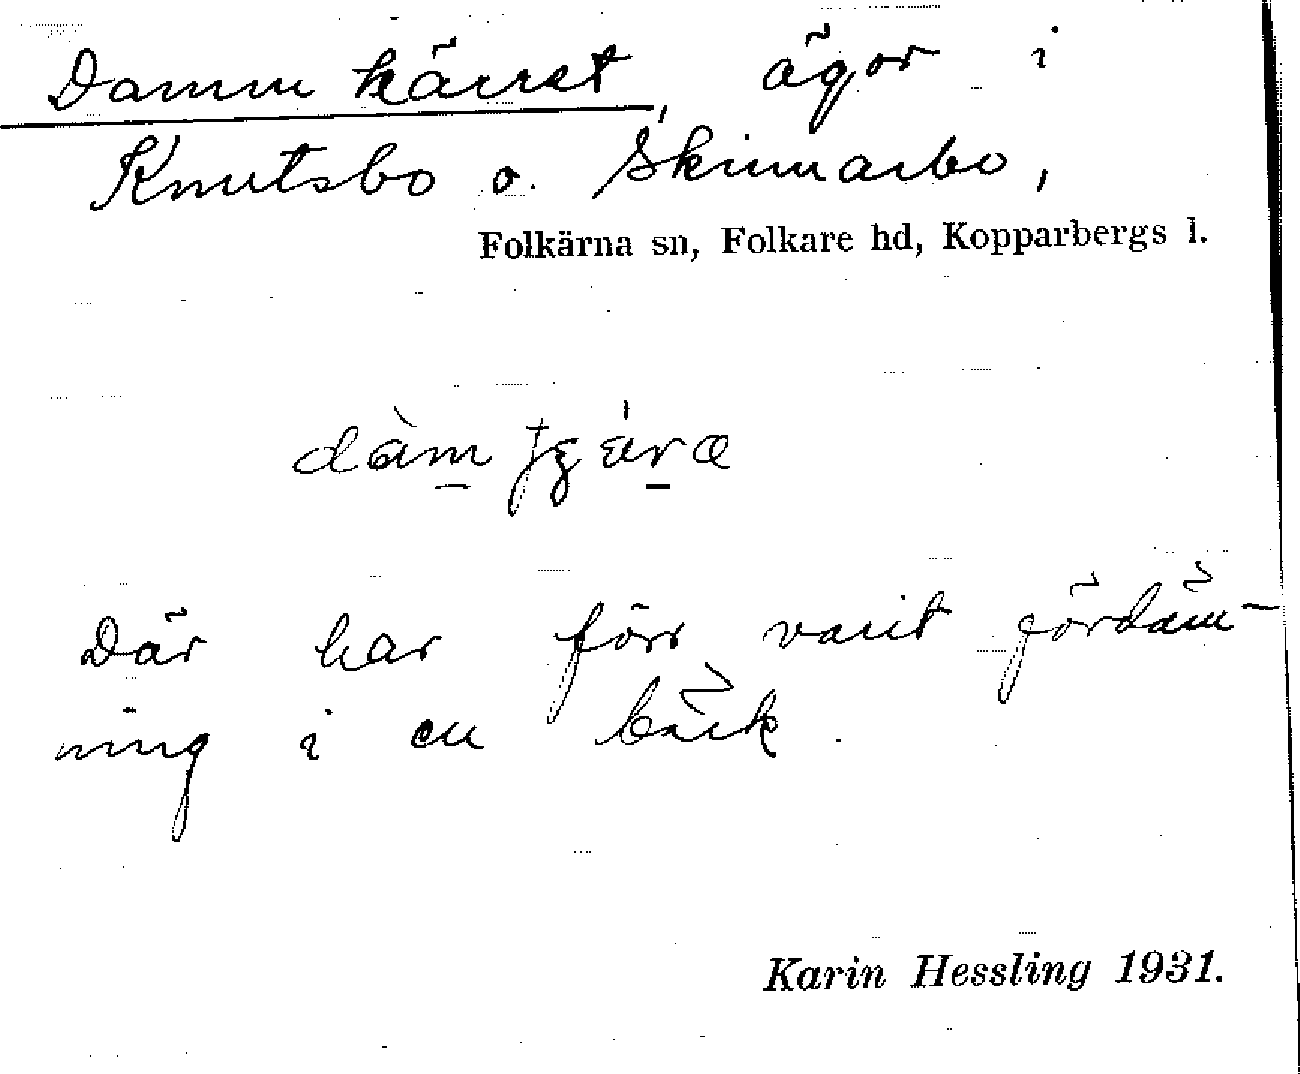 Damm kärret, ägor i
Knutsbo o. Skinnarbo,
Folkärna sn, Folkare hd, Kopparbergs l.
Där har förr varit fördäm-
ning i en bäck.
Karin Hessling 1931.